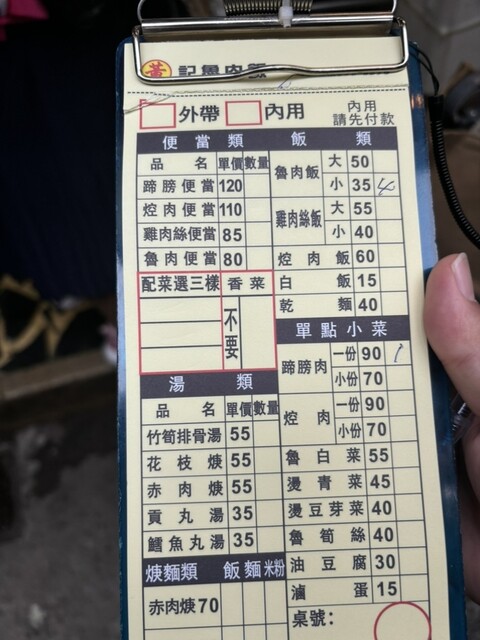 黃 記魯肉飯
外帶 內用 內用
請先付款
便當類
品名 單價 數量
蹄膀便當 120
焢肉便當 110
雞肉絲便當 85
魯肉便當 80
配菜選三樣 香菜
不要
湯類
品名 單價 數量
竹筍排骨湯 55
花枝焿 55
赤肉焿 55
貢丸湯 35
鱈魚丸湯 35
焿麵類 飯 麵 米粉
赤肉焿 70
飯類
魯肉飯 大 50
小 35 4
雞肉絲飯 大 55
小 40
焢肉飯 60
白飯 15
乾麵 40
單點小菜
蹄膀肉 一份 90 1
小份 70
焢肉 一份 90
小份 70
魯白菜 55
燙青菜 45
燙豆芽菜 40
魯筍絲 40
油豆腐 30
滷蛋 15
桌號：